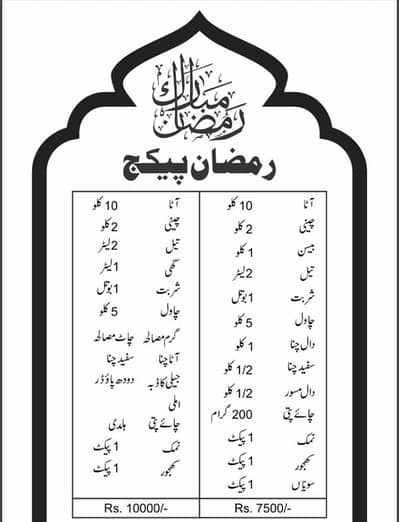 رمضان مبارك
رمضان پیکج
آٹا 10 کلو
چینی 2 کلو
بیسن 1 کلو
تیل 2 لیٹر
شربت 1 بوتل
چاول 5 کلو
دال چنا 1 کلو
سفید چنا 1/2 کلو
دال مسور 1/2 کلو
چائے پتی 200 گرام
نمک 1 پیکٹ
کھجور 1 پیکٹ
سویاں 1 پیکٹ
Rs. 7500/-
آٹا 10 کلو
چینی 2 کلو
تیل 2 لیٹر
گھی 1 لیٹر
شربت 1 بوتل
چاول 5 کلو
گرم مصالحہ چاٹ مصالحہ
آٹا چنا سفید چنا
جیلی کا ڈبہ دودھ پاؤڈر
املی
چائے پتی ہلدی
نمک 1 پیکٹ
کھجور 1 پیکٹ
Rs. 10000/-